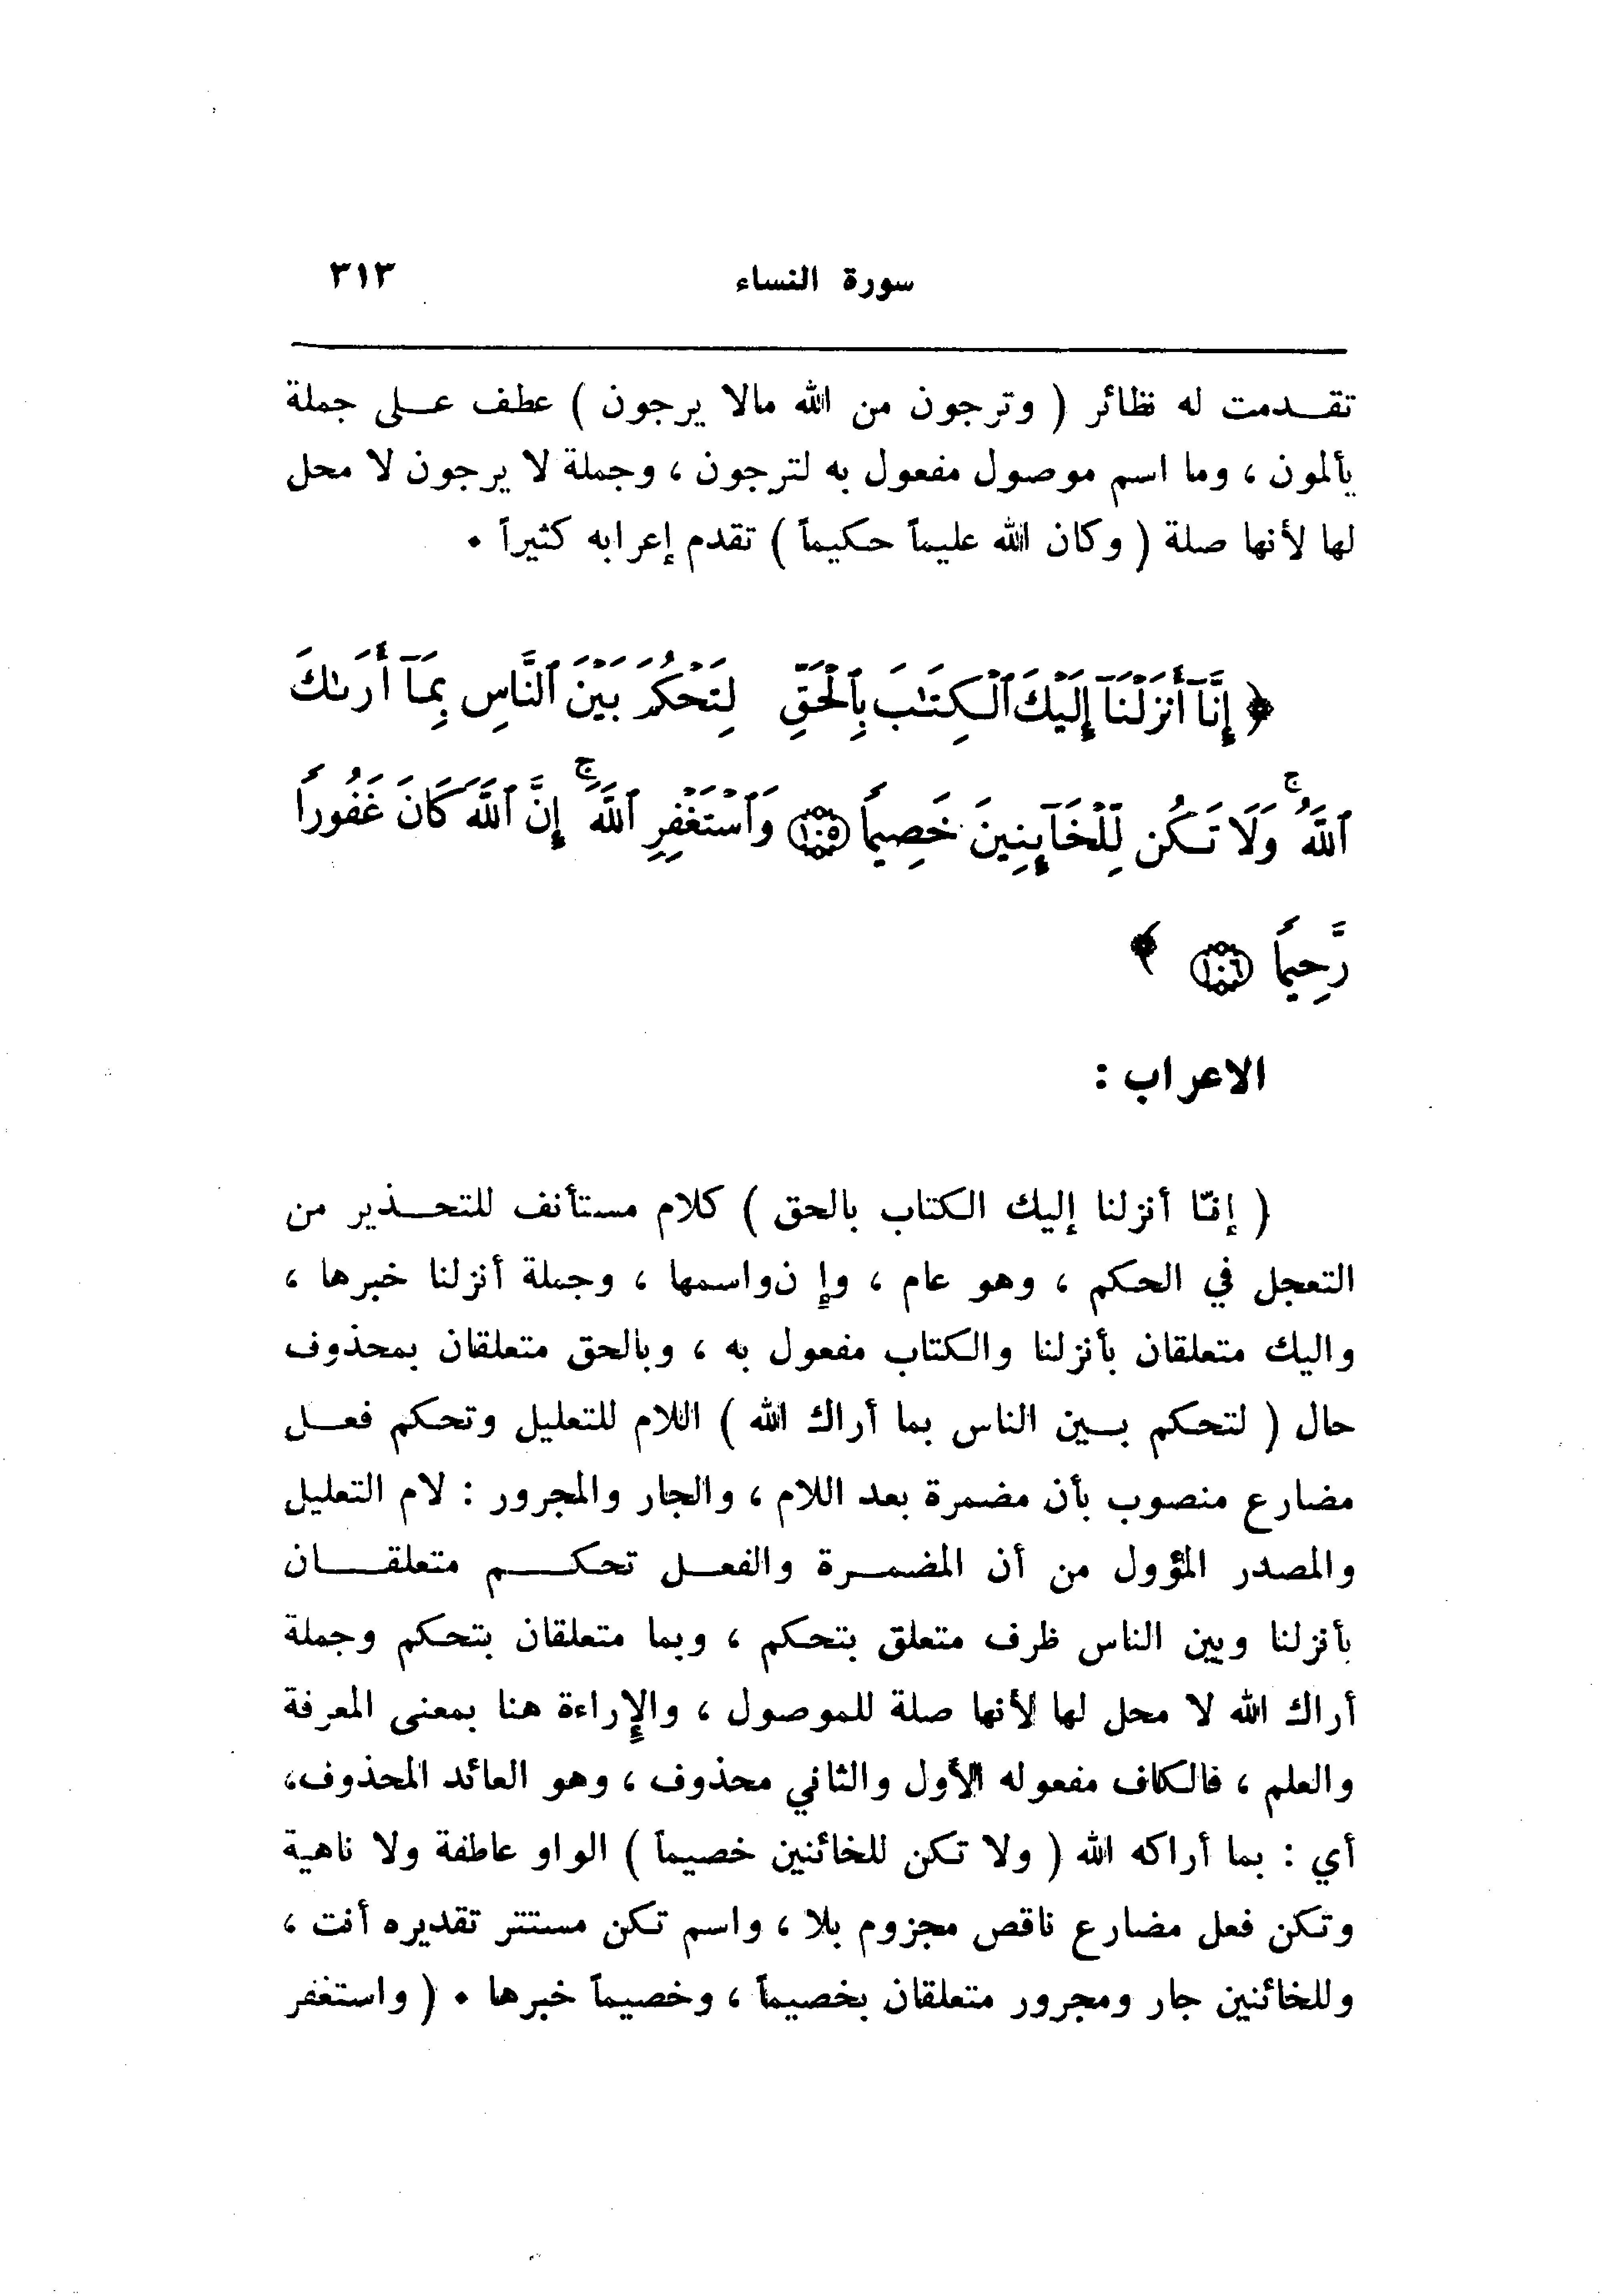 سورة النساء ٣١٣
تقدمت له نظائر ( وترجون من الله مالا يرجون ) عطف على جملة
يألمون ، وما اسم موصول مفعول به لترجون ، وجملة لا يرجون لا محل
لها لأنها صلة ( وكان الله عليماً حكيماً ) تقدم إعرابه كثيراً .
﴿ إِنَّآ أَنزَلْنَآ إِلَيْكَ ٱلْكِتَٰبَ بِٱلْحَقِّ لِتَحْكُمَ بَيْنَ ٱلنَّاسِ بِمَآ أَرَىٰكَ
ٱللَّهُ ۚ وَلَا تَكُن لِّلْخَآئِنِينَ خَصِيمًا ١٠٥ وَٱسْتَغْفِرِ ٱللَّهَ ۚ إِنَّ ٱللَّهَ كَانَ غَفُورًا
رَّحِيمًا ١٠٦ ﴾
الاعراب :
( إنّا أنزلنا إليك الكتاب بالحق ) كلام مستأنف للتحذير من
التعجل في الحكم ، وهو عام ، وإ ن واسمها ، وجملة أنزلنا خبرها ،
واليك متعلقان بأنزلنا والكتاب مفعول به ، وبالحق متعلقان بمحذوف
حال ( لتحكم بين الناس بما أراك الله ) اللام للتعليل وتحكم فعل
مضارع منصوب بأن مضمرة بعد اللام ، والجار والمجرور : لام التعليل
والمصدر المؤول من أن المضمرة والفعل تحكم متعلقان
بأنزلنا وبين الناس ظرف متعلق بتحكم ، وبما متعلقان بتحكم وجملة
أراك الله لا محل لها لأنها صلة للموصول ، والإراءة هنا بمعنى المعرفة
والعلم ، فالكاف مفعوله الأول والثاني محذوف ، وهو العائد المحذوف،
أي : بما أراكه الله ( ولا تكن للخائنين خصيماً ) الواو عاطفة ولا ناهية
وتكن فعل مضارع ناقص مجزوم بلا ، واسم تكن مستتر تقديره أنت ،
وللخائنين جار ومجرور متعلقان بخصيماً ، وخصيماً خبرها . ( واستغفر